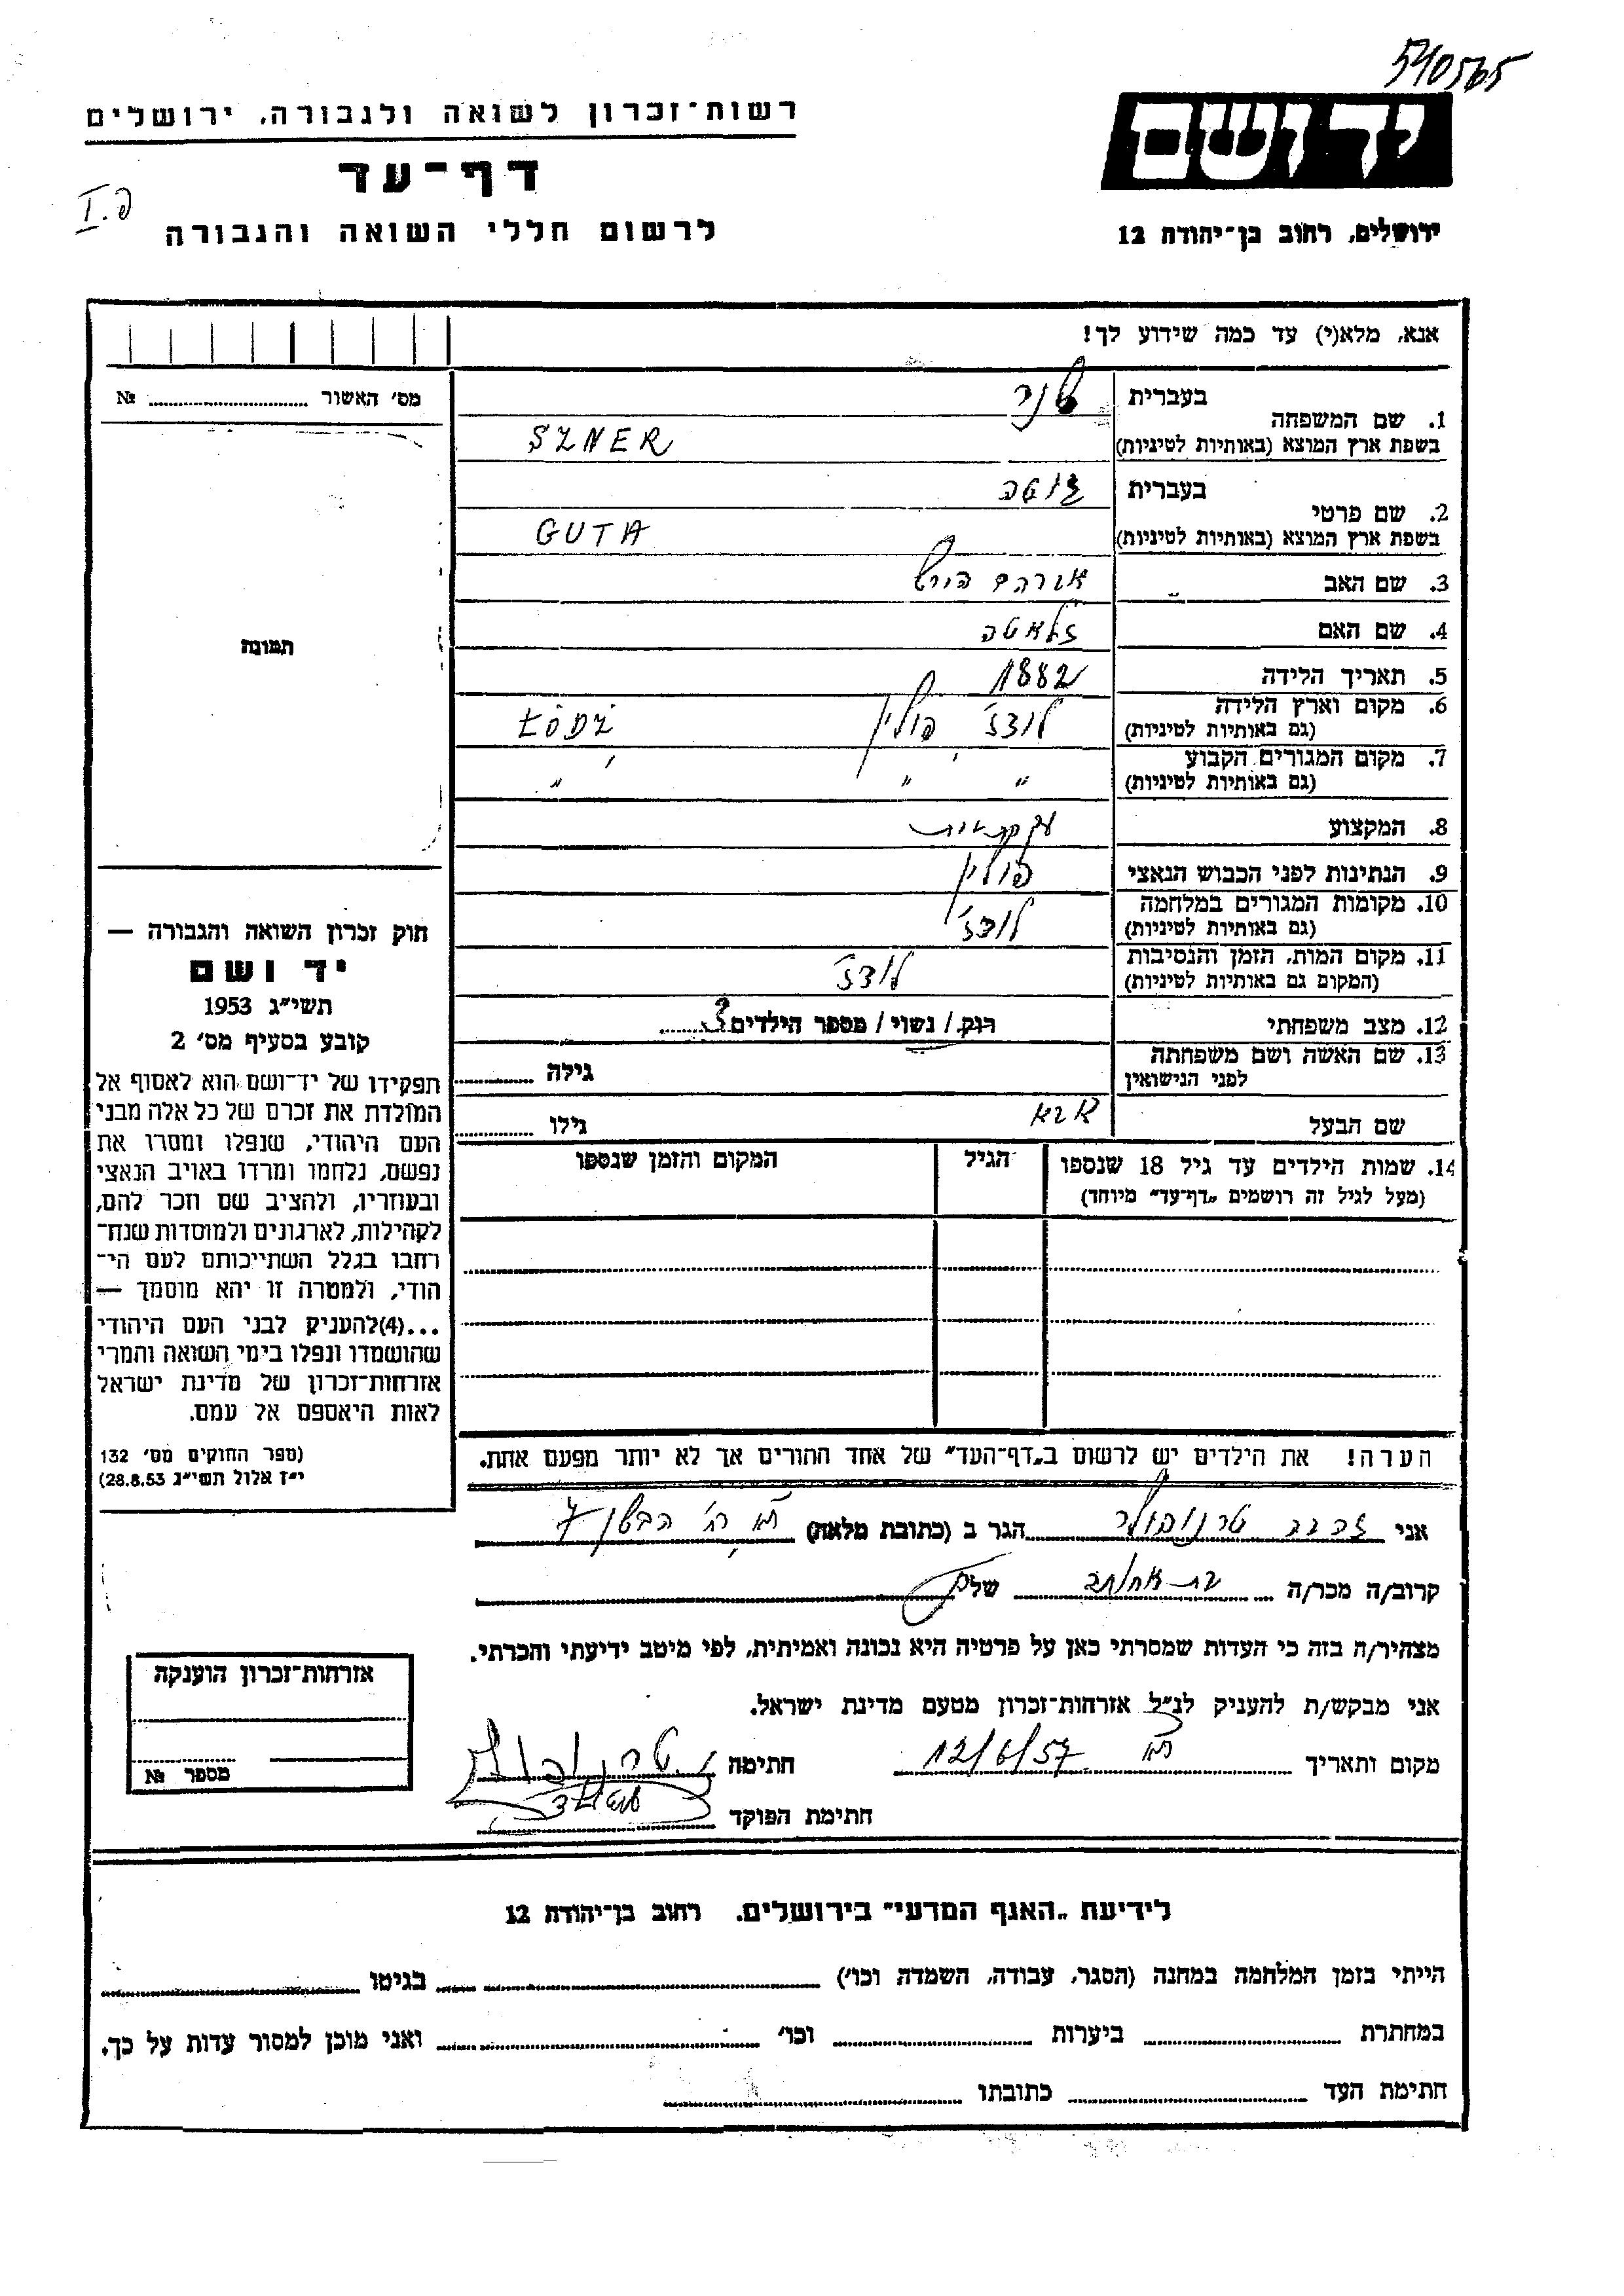 540565
ידושם
רשות־זכרון לשואה ולגבורה, ירושלים
דף־עד
I.פ
לרשום חללי השואה והגבורה
ירושלים, רחוב בן־יהודה 12
אנא, מלא(י) עד כמה שידוע לך!
מס׳ האשור № 
1. שם המשפחה
בעברית שנר
בשפת ארץ המוצא (באותיות לטיניות) SZNER
2. שם פרטי
בעברית גוטה
בשפת ארץ המוצא (באותיות לטיניות) GUTA
3. שם האב אברהם הירש
4. שם האם זלאטה
5. תאריך הלידה 1882
6. מקום וארץ הלידה לודז׳ פולין ŁÓDŹ
(גם באותיות לטיניות)
7. מקום המגורים הקבוע
(גם באותיות לטיניות) " " "
8. המקצוע
9. הנתינות לפני הכבוש הנאצי פולין
10. מקומות המגורים במלחמה
(גם באותיות לטיניות) לודז׳
11. מקום המות, הזמן והנסיבות לודז
(המקום גם באותיות לטיניות)
12. מצב משפחתי רוק/ נשוי/ מספר הילדים 3
13. שם האשה ושם משפחתה
לפני הנישואין גילה
שם הבעל אבא גילו
14. שמות הילדים עד גיל 18 שנספו הגיל המקום והזמן שנספו
(מעל לגיל זה רושמים „דף־עד״ מיוחד)
הערה! את הילדים יש לרשום ב„דף־העד״ של אחד ההורים אך לא יותר מפעם אחת.
תמונה
חוק זכרון השואה והגבורה —
יד ושם
תשי״ג 1953
קובע בסעיף מס׳ 2
תפקידו של יד־ושם הוא לאסוף אל
המולדת את זכרם של כל אלה מבני
העם היהודי, שנפלו ומסרו את
נפשם, נלחמו ומרדו באויב הנאצי
ובעוזריו, ולהציב שם וזכר להם,
לקהילות, לארגונים ולמוסדות שנח־
רבו בגלל השתייכותם לעם הי־
הודי, ולמטרה זו יהא מוסמך —
...(4)להעניק לבני העם היהודי
שהושמדו ונפלו בימי השואה והמרי
אזרחות־זכרון של מדינת ישראל
לאות היאספם אל עמם.
(ספר החוקים מס׳ 132
י״ז אלול תשי״ג 28.8.53)
אני זהבה טרנופולר הגר ב (כתובת מלאה) ת״א רח׳ הבשן 7
קרוב/ה מכר/ה בת אחותה של
מצהיר/ה בזה כי העדות שמסרתי כאן על פרטיה היא נכונה ואמיתית, לפי מיטב ידיעתי והכרתי.
אני מבקש/ת להעניק לנ״ל אזרחות־זכרון מטעם מדינת ישראל.
מקום ותאריך ת״א 12/6/57 חתימה
חתימת הפוקד
אזרחות־זכרון הוענקה
מספר №
לידיעת „האגף המדעי״ בירושלים, רחוב בן־יהודה 12
הייתי בזמן המלחמה במחנה (הסגר, עבודה, השמדה וכו׳) בגיטו
במחתרת ביערות וכו׳ ואני מוכן למסור עדות על כך.
חתימת העד כתובתו